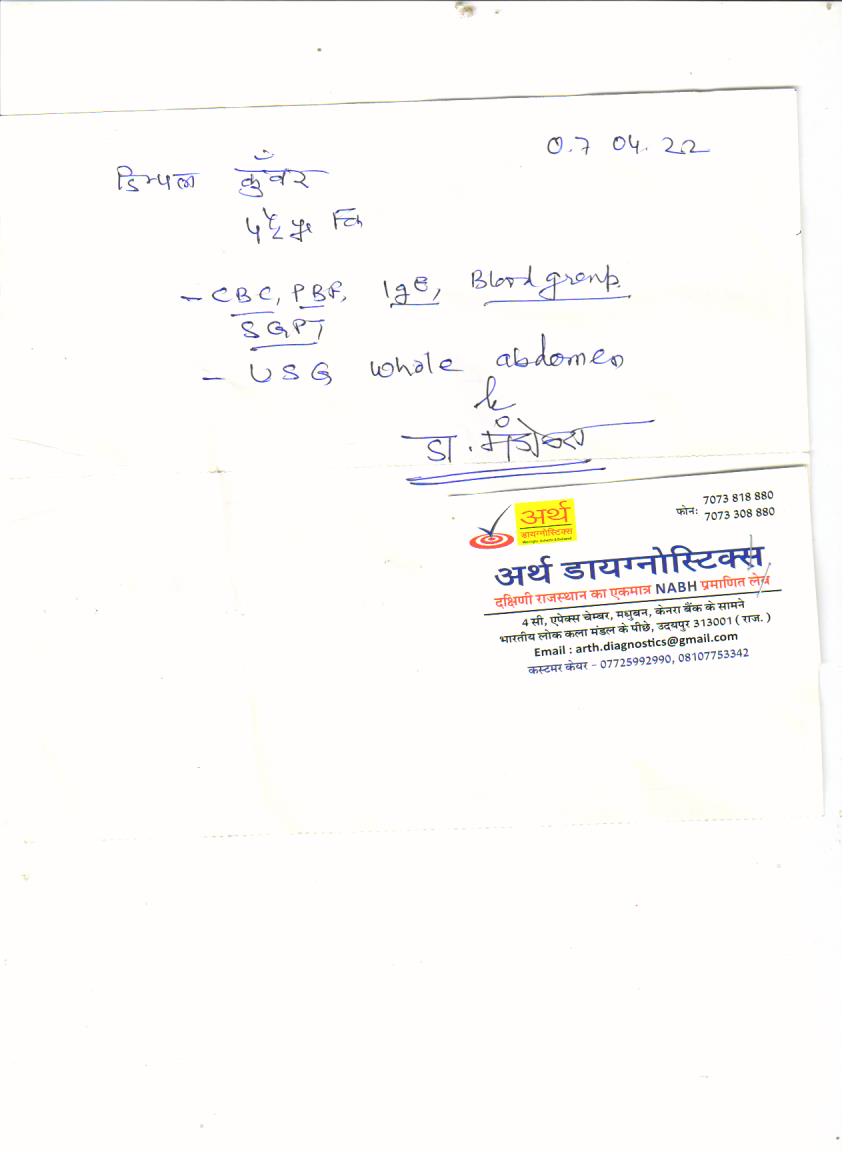 07 04.22
डिम्पल कुँवर
- CBC, PBF, IgE, Blood group
SGPT
- USG whole abdomen
डा.
अर्थ
डायग्नोस्टिक्स
फोन: 7073 818 880
7073 308 880
अर्थ डायग्नोस्टिक्स
दक्षिणी राजस्थान का एकमात्र NABH प्रमाणित लेब
4 सी, एपेक्स चेम्बर, मधुबन, केनरा बैंक के सामने
भारतीय लोक कला मंडल के पीछे, उदयपुर 313001 ( राज. )
Email : arth.diagnostics@gmail.com
कस्टमर केयर - 07725992990, 08107753342